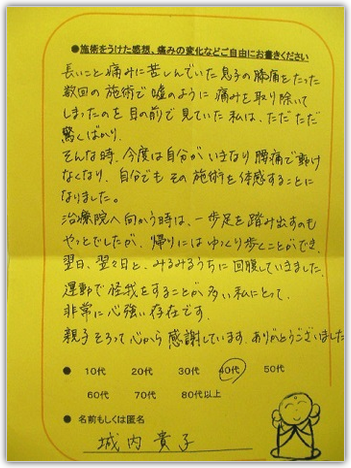 ●施術をうけた感想、痛みの変化などご自由にお書きください
長いこと痛みに苦しんでいた息子の膝痛をたった
数回の施術で嘘のように痛みを取り除いて
しまったのを目の前で見ていた私は、ただただ
驚くばかり。
そんな時、今度は自分がいきなり腰痛で動け
なくなり、自分でもその施術を体感することに
なりました。
治療院へ向かう時は、一歩足を踏み出すのも
やっとでしたが、帰りにはゆっくり歩くことができ、
翌日、翌々日と、みるみるうちに回腹していきました。
運動で怪我をすることが多い私にとって、
非常に心強い存在です。
親子そろって心から感謝しています。ありがとうございました
● 10代 20代 30代 40代 50代
60代 70代 80代以上
● 名前もしくは匿名
城内貴子